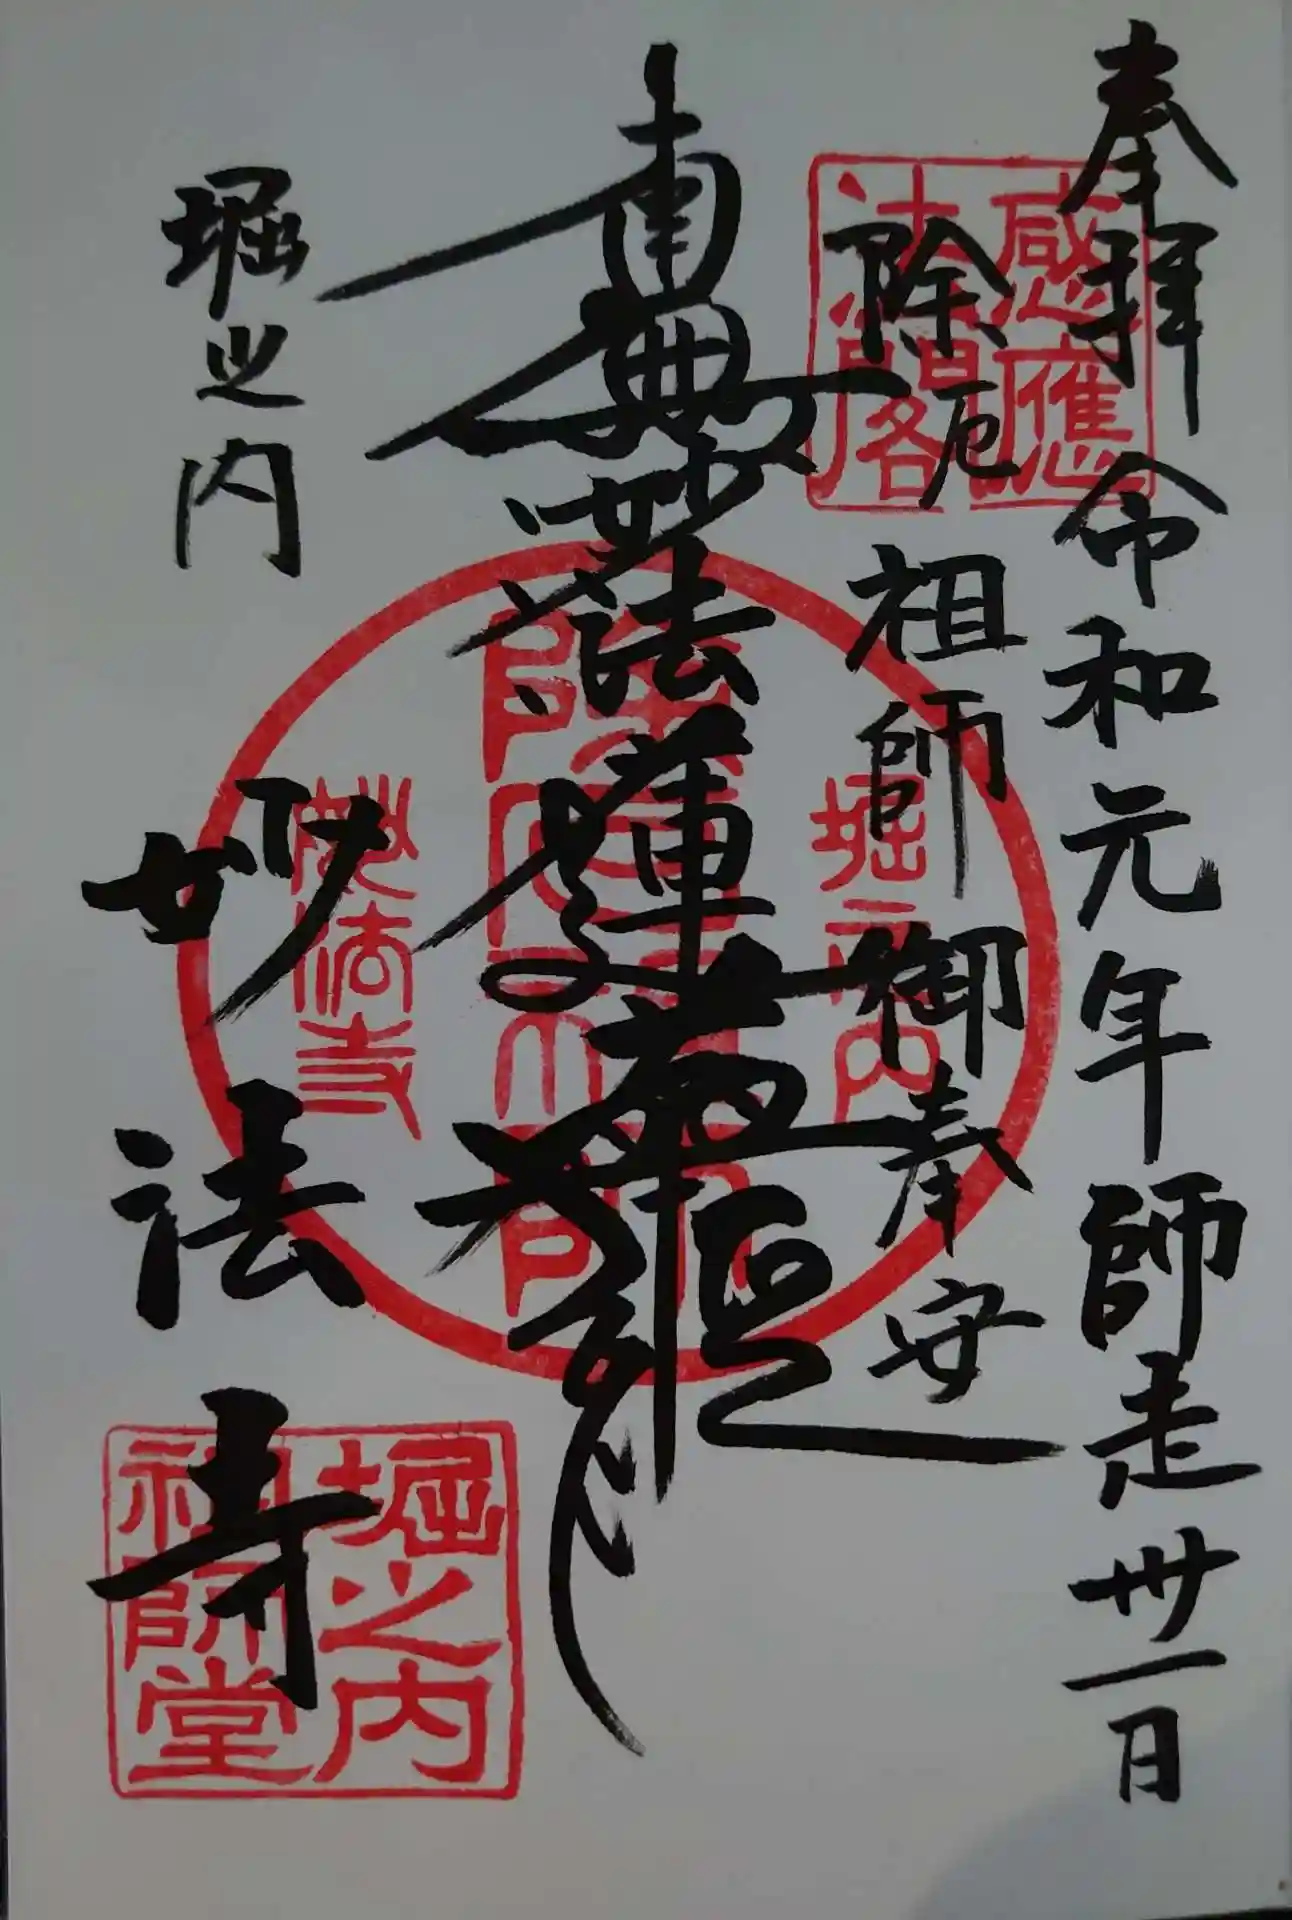 奉拝 令和元年師走卅一日
除厄祖師御奉安
南無妙法蓮華経
堀之内
妙法寺
感應
法華閣
堀之内
除厄祖師
妙法寺
堀之内
祖師堂